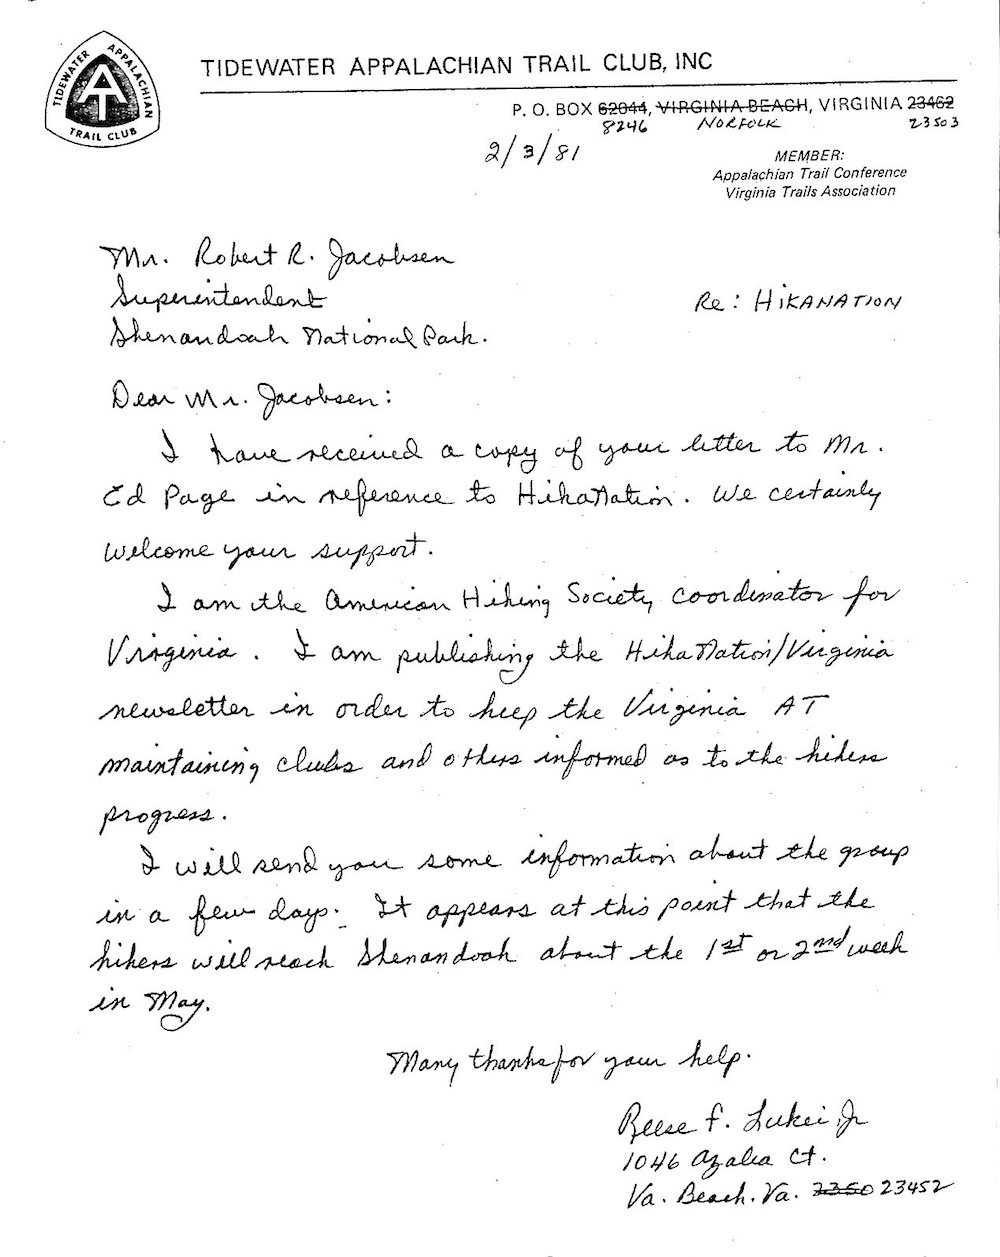 TIDEWATER APPALACHIAN
TRAIL CLUB
AT
TIDEWATER APPALACHIAN TRAIL CLUB, INC
P. O. BOX 62044, VIRGINIA BEACH, VIRGINIA 23462
8246 NORFOLK 23503
2/3/81
MEMBER:
Appalachian Trail Conference
Virginia Trails Association
Mr. Robert R. Jacobsen
Superintendent
Re: HIKANATION
Shenandoah National Park.
Dear Mr. Jacobsen:
I have received a copy of your letter to Mr.
Ed Page in reference to HikaNation. We certainly
welcome your support.
I am the American Hiking Society coordinator for
Virginia. I am publishing the HikaNation/Virginia
newsletter in order to keep the Virginia AT
maintaining clubs and others informed as to the hikers
progress.
I will send you some information about the group
in a few days. It appears at this point that the
hikers will reach Shenandoah about the 1st or 2nd week
in May.
Many thanks for your help.
Reese F. Lukei, Jr
1046 Azalea Ct.
Va. Beach. Va. 2350 23452